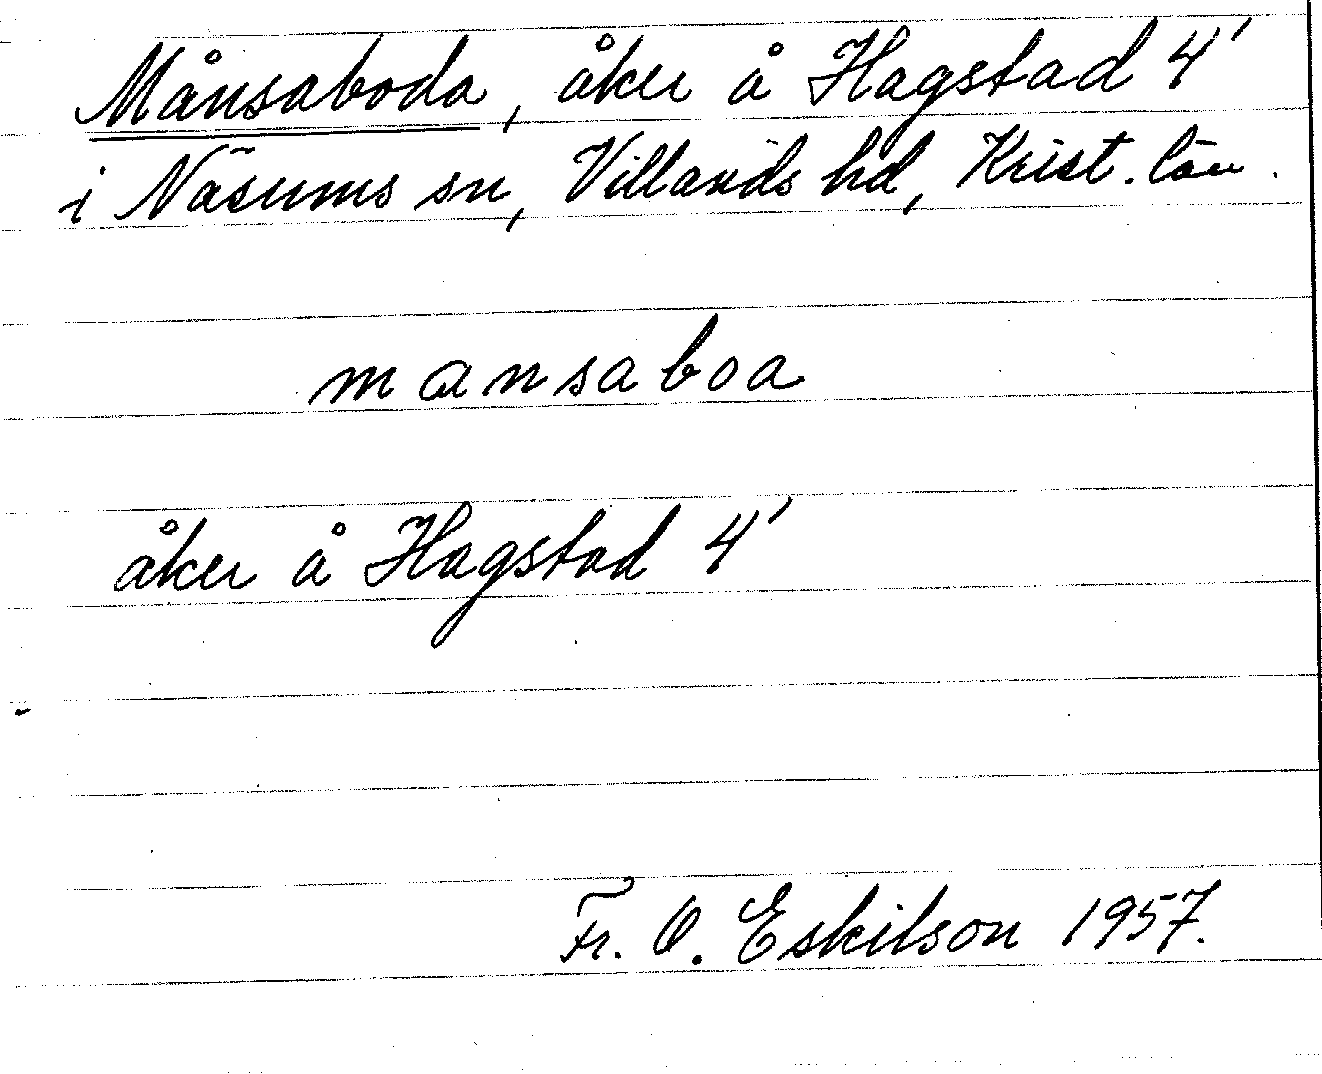 Månsaboda, åker å Hagstad 4'
i Näsums sn, Villands hd, Krist. län.
mansaboa
åker å Hagstad 4'
Fr. O. Eskilson 1957.